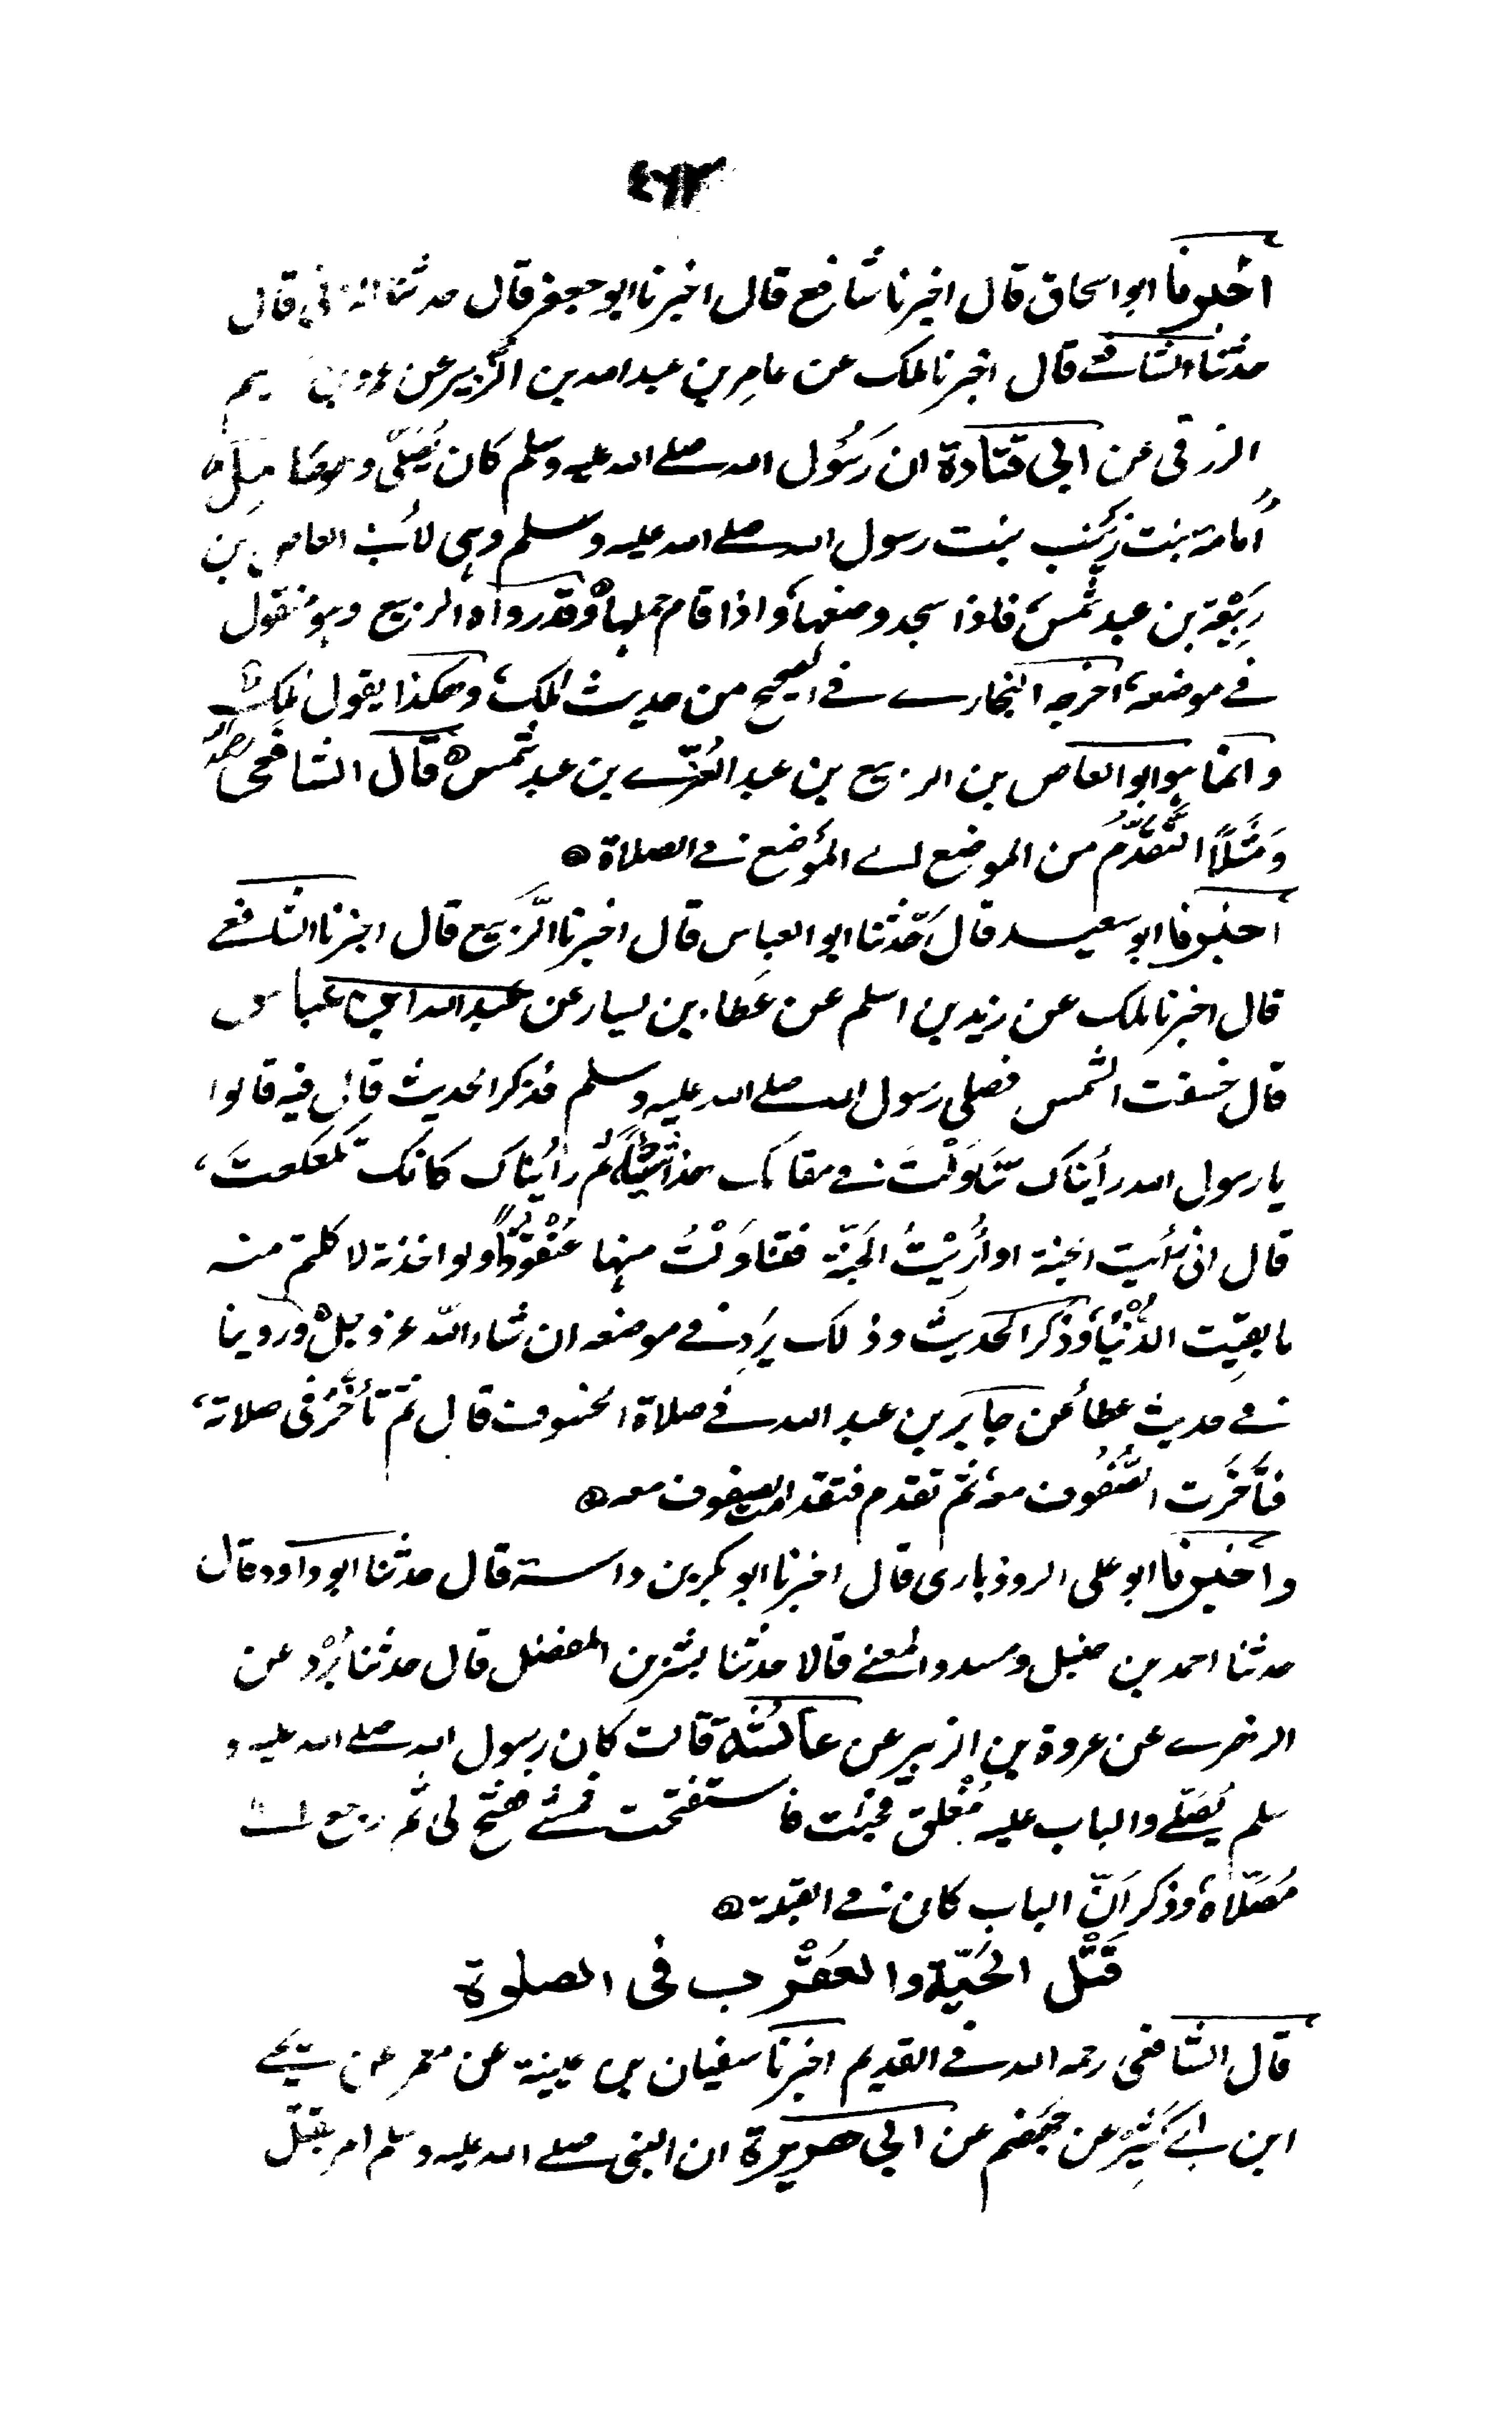 اخبرنا ابو اسحاق قال اخبرنا شافع قال اخبرنا ابو جعفر قال حدثنا المزنی قال
حدثنا الشافعے قال اخبرنا ملک عن عامِر بن عبد الله بن الزُّبیر عن عمرو بن سلیم
الزرقی عن ابی قتادة ان رَسُول الله صلے الله علیہ وسلم کان یُصَلّی وهو حامل
اُمامة بنت زینب بنت رسول الله صلے الله علیہ وسلم وہی لأبی العاص بن
رَبِیْعَة بن عبد شمسَ، فاذا سجد وضعہا، واذا قام حملہا، وقد رواه الربیع وہو منقول
فے موضعہ، اخرجہ البخارے فے الصحیح من حدیث مٰلک، وهکذا یقول مٰلک
وانما ہو ابو العاص بن الربیع بن عبد العُزّے بن عبد شمس قال الشافعی
وَمَثَلًا التَّقَدُّمُ من الموضع لے المَوضع فے الصلاة
اخبرنا ابو سعید قال حَدّثنا ابو العباس قال اخبرنا الرَّبیع قال اخبرنا الشافعے
قال اخبرنا ملک عن زید بن اسلم عن عَطاء بن یسار عن عبد الله بن عباس
قال خسفت الشمس فصلی رسول الله صلے الله علیہ وسلم فذکر الحدیث قال فیہ قالوا
یا رسول الله رأیناک تَنَاوَلْتَ فے مقامک هذا شَیْئًا ثم رأیناک کانک تکعکعتَ،
قال انی رأیت الجنة او أُرِیْتُ الجَنّة فتناوَلْتُ منہا عُنْقُوْدًا ولو اخذتہ لاکلتم منہ
ما بقِیَت الدُّنْیا، وَذکر الحَدیث وذلک یَرِد فے موضعہ ان شاء الله عز وجل وروینا
فے حدیث عطاء عن جابر بن عبد الله فے صلاة الخسوف قال ثم تأَخَّرَ فی صلاتہ،
فتأخَّرَت الصُّفُوف معہ، ثم تقدم فتقدمت الصفوف معہ
واخبرنا ابو علی الروذباری قال اخبرنا ابو بکر بن داسة قال حدثنا ابو داود قال
حدثنا احمد بن حنبل ومسدد المعنے قالا حدثنا بشر بن المفضل قال حدثنا بُرْد عن
الزہرے عن عروة بن الزبیر عن عائشة قالت کان رسول الله صلے الله علیہ و
سلم یُصَلّے والباب علیہ مُغْلق فجئت فاستفتحت فمشے ففتح لی ثم رجع الے
مُصَلّاه، وذکر اَنّ الباب کان فے القبلة
قَتْل الحَیّة والعَقْرب فی الصلوة
قال الشافعی رحمہ الله فے القدیم اخبرنا سفیان بن عیینة عن معمر عن یحیے
ابن ابے کَثِیْر عن ضَمْضَم عن ابی هریرة ان النبی صلے الله علیہ وسلم امر بقتل